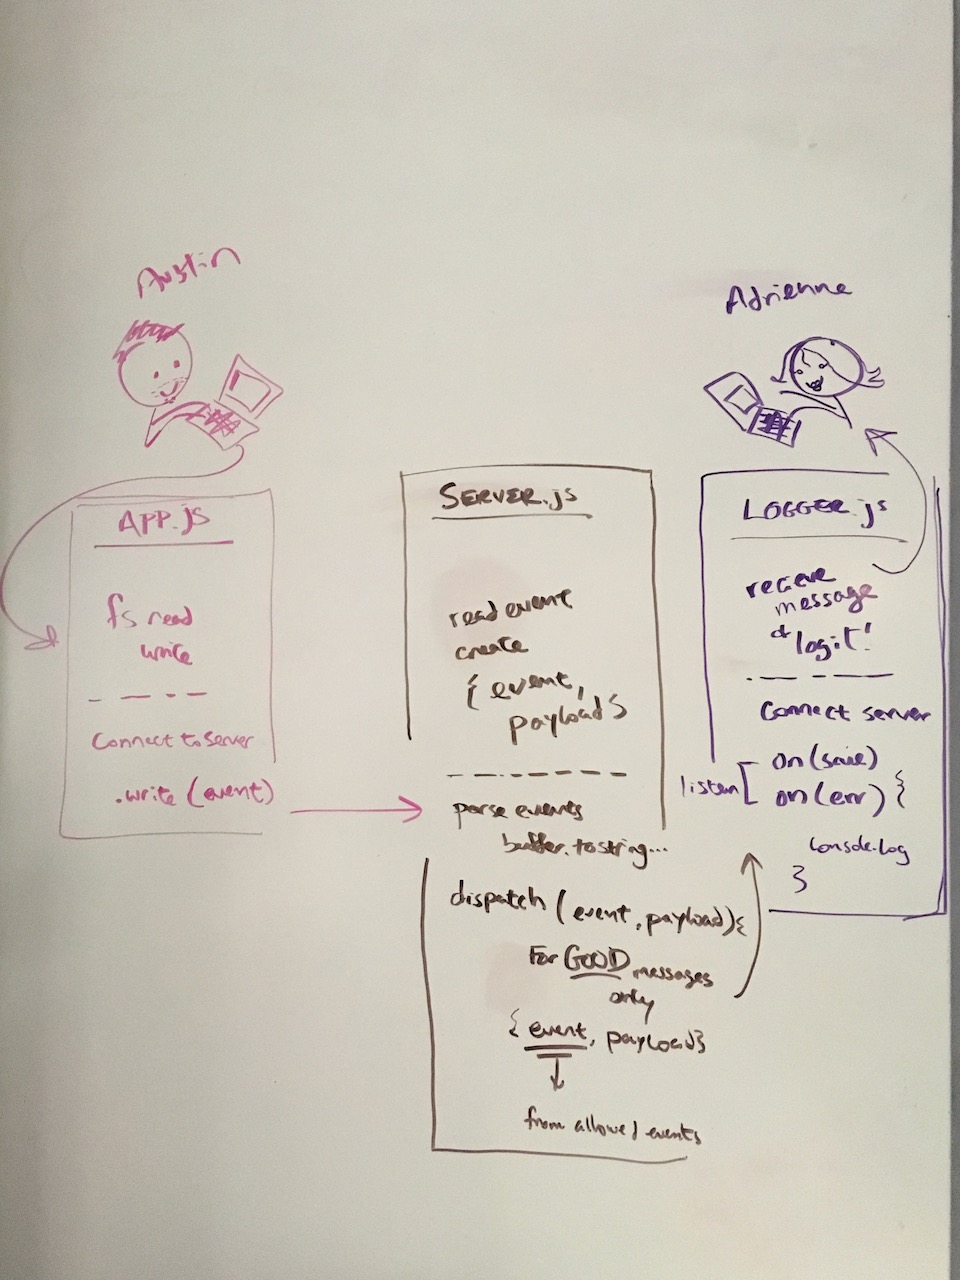 Austin
APP.js
fs read
write
Connect to Server
.write (event)
SERVER.js
read event
create
{ event,
payload}
parse events
buffer.tostring...
dispatch (event, payload){
For GOOD messages
only
{ event, payload}
from allowed events
Adrienne
LOGGER.js
recieve
message
+ logit!
Connect server
listen [ on (save)
on (err) {
console.log
}